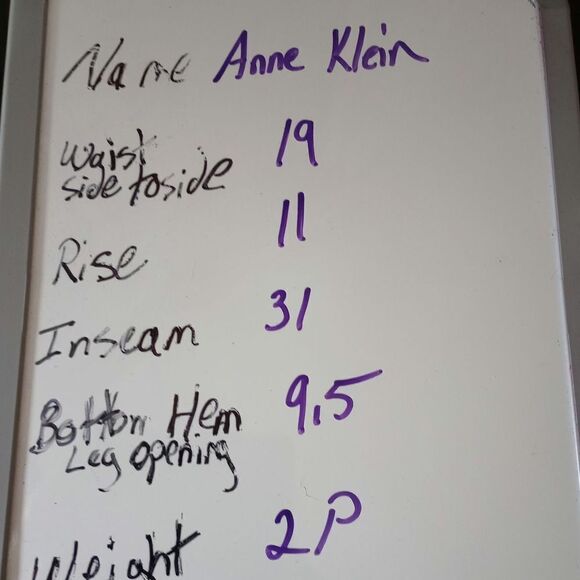 Name Anne Klein
Waist 19
side to side
Rise 11
Inseam 31
Bottom Hem 9.5
Leg opening
Weight 2P